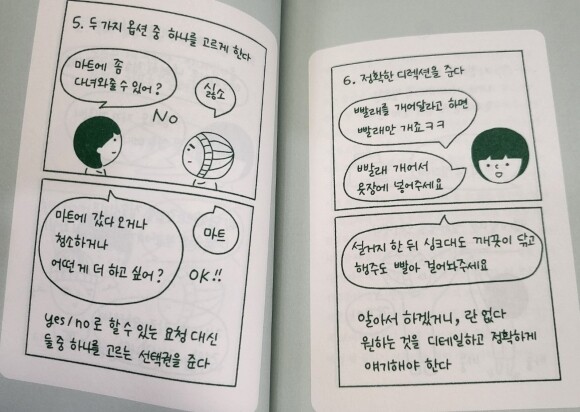 5. 두 가지 옵션 중 하나를 고르게 한다
마트에 좀
다녀와줄 수 있어?
싫소
NO
마트에 갔다 오거나
청소하거나
어떤 게 더 하고 싶어?
마트
OK!!
yes/no로 할 수 있는 요청 대신
둘 중 하나를 고르는 선택권을 준다
6. 정확한 디렉션을 준다
빨래를 개어달라고 하면
빨래만 개죠ㅋㅋ
빨래 개어서
옷장에 넣어주세요
설거지 한 뒤 싱크대도 깨끗이 닦고
행주도 빨아 걸어놔주세요
알아서 하겠거니, 란 없다
원하는 것을 디테일하고 정확하게
얘기해야 한다